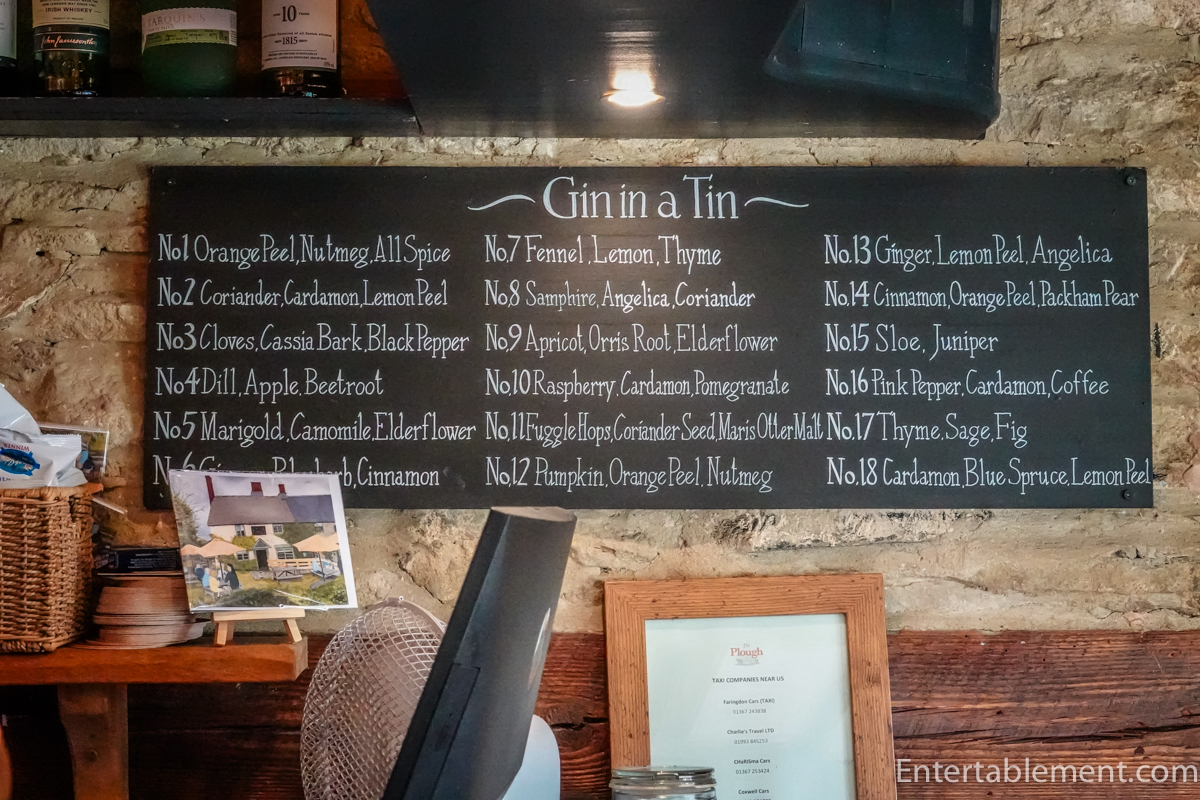 IRISH WHISKEY
TARQUIN'S
10 YEARS
1815
~Gin in a Tin~
No1 Orange Peel, Nutmeg, All Spice
No2 Coriander, Cardamon, Lemon Peel
No3 Cloves, Cassia Bark, Black Pepper
No4 Dill, Apple, Beetroot
No5 Marigold, Camomile, Elderflower
No6 Cinnamon
No.7 Fennel, Lemon, Thyme
No.8 Samphire, Angelica, Coriander
No.9 Apricot, Orris Root, Elderflower
No.10 Raspberry, Cardamon, Pomegranate
No.11 Fuggle Hops, Coriander Seed, Maris Otter Malt
No.12 Pumpkin, Orange Peel, Nutmeg
No.13 Ginger, Lemon Peel, Angelica
No.14 Cinnamon, Orange Peel, Packham Pear
No.15 Sloe, Juniper
No.16 Pink Pepper, Cardamon, Coffee
No.17 Thyme, Sage, Fig
No.18 Cardamon, Blue Spruce, Lemon Peel
Plough
TAXI COMPANIES NEAR US
Faringdon Cars (TAXI)
01367 243838
Charlie's Travel LTD
01993 845253
CHaRISma Cars
01367 253424
Coxwell Cars
Entertablement.com